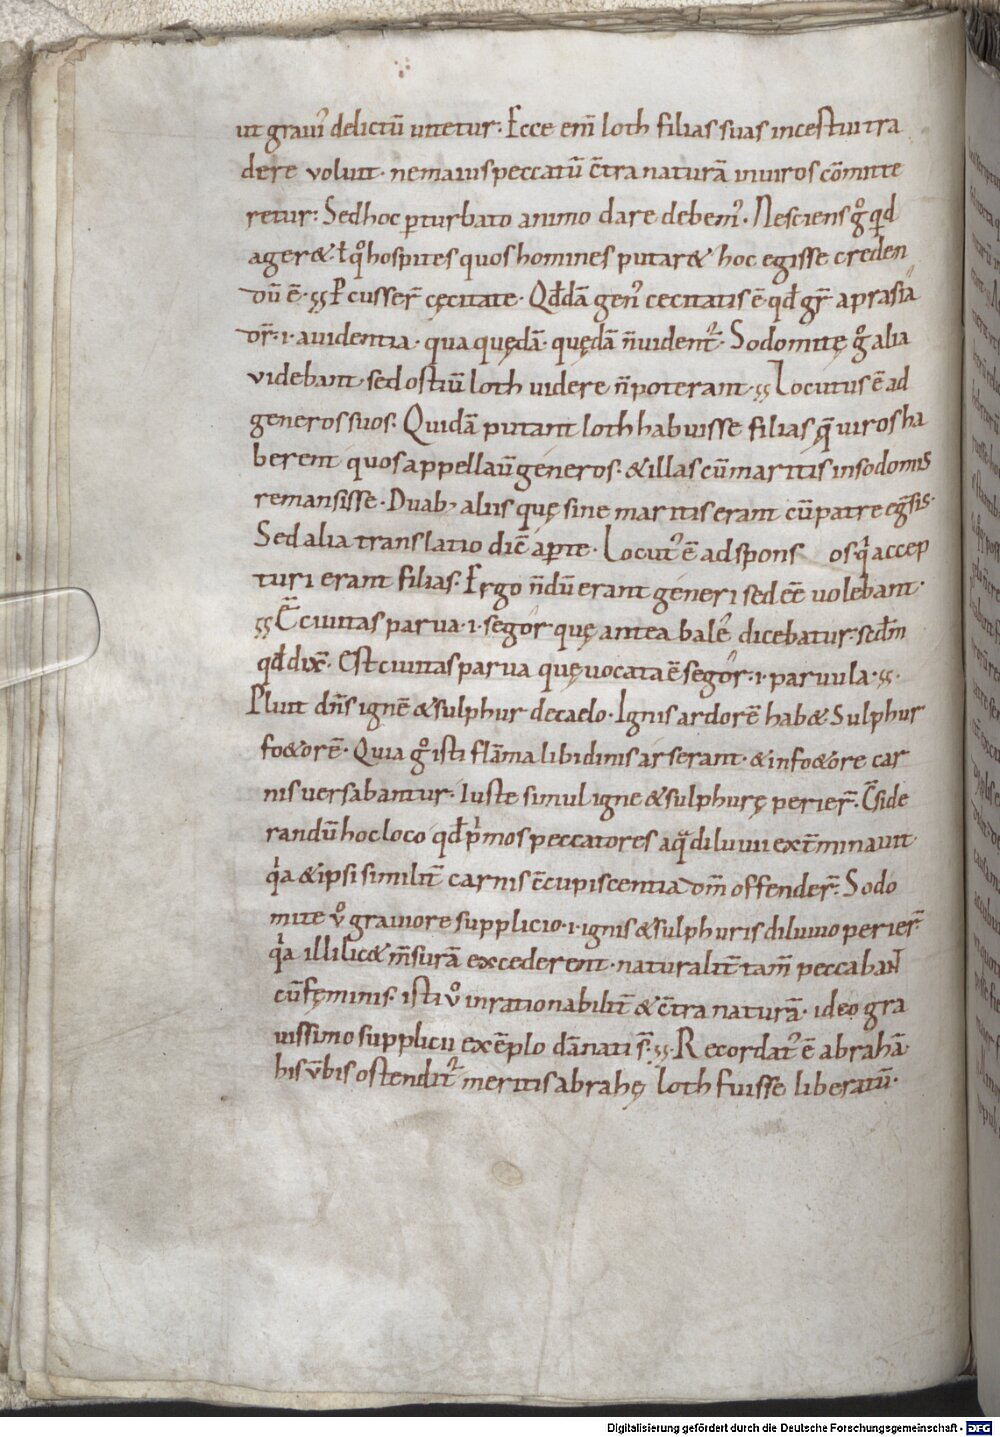 ut grauī delictū uitetur: Ecce enī loth filias suas incestui tra
dere voluit · ne maius peccatū c̄tra naturā in uiros cōmitte
retur: Sed hoc ꝑturbato animo dare debem᾽. Nesciens g° qd
ager& · ł q°s hospites quos homines putar& hoc egisse creden
dū ē · Pcusser̄ cęcitate · Qđdā gen᾽ cecitatis ē · qđ gr̄ aprasia
dr̄ · i · auidentia · qua quędā · quędā n̄ vident᾽. Sodomitę g° alia
videbant · sed ostiū loth uidere n̄ poterant · Locutus ē ad
generos suos. Quidā putant loth habuisse filias q̄ uiros ha
berent quos appellauit generos · & illas cū maritis in sodomis
remansisse · Duab; aliis quę sine maritis erant cū patre eḡsis ·
Sed alia translatio dic̄ aꝑte · Locut᾽ ē ad spons os qi accep
turi erant filias. Ergo n̄dū erant generi sed eē uolebant ·
Ē ciuitas parua · i · segor quę antea bale᾽ dicebatur · sed̄m
qđ dix̄ · Est ciuitas parua quę uocata ē segor · i · paruula ·
Pluit dn̄s ignē & sulphur de caelo · Ignis ardorē hab& · Sulphur
fo&orē · Quia g° isti flāma libidinis arserant · & in fo&ore car
nis uersabantur · Iuste simul igne & sulphurę perier̄. C̄side
randū hoc loco qđ pimos peccatores aqa diluuii ext̄minauit ·
qia & ipsi similit̄ carnis c̄cupiscentia dom̄ offender̄. Sodo
mite v° grauiore supplicio · i · ignis & sulphuris diluuio perier̄ ·
qia illi lic& m̄surā excederent · naturalit̄ tam̄ peccabaN
cū fęminis. isti v° inrationabilit̄ & c̄tra naturā · ideo gra
uissimo supplicii exēplo dānati s̄. Recordat᾽ ē abrahā ·
his v̄bis ostendit᾽ meritis abrahę loth fuisse liberatū ·
Digitalisierung gefördert durch die Deutsche Forschungsgemeinschaft - DFG